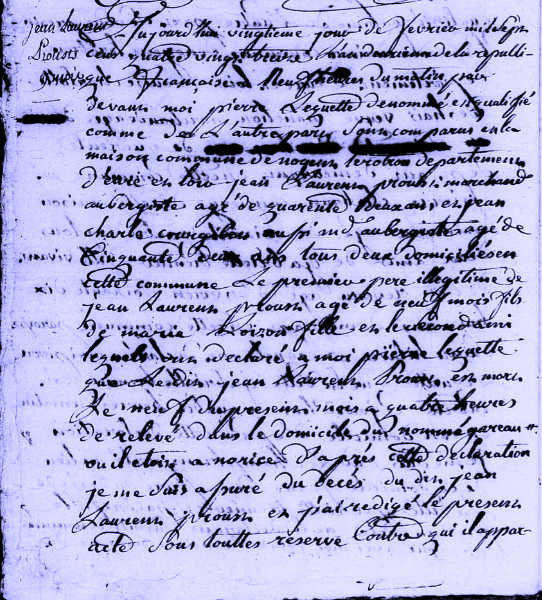 jean Laurent
Proust
Aujourd'hui vingtieme jour de fevrier mil sept
cent quatre vingt treize L'an deuxieme de la republi-
que française a neuf heures du matin par
devant moi pierre Lequette denomé et qualifié
comme de L'autre part Sont comparus en la
maison commune de nogent le rotrou departement
d'eure et loir jean Laurent proust marchand
aubergiste agé de quarente deux ans et jean
charle aussi md. aubergiste agé de
Cinquante deux ans tous deux domiciliés en
cette commune Le premier pere illegitime de
jean Laurent proust agé de neuf mois fils
de marie Loizon fille et le second ami
lequels ont declaré a moi pierre lequette
que Ledit jean Laurent Proust est mort
Le neuf du present mois a quatre heures
de relevé dans le domicile du nommé gareau
ou il etoit a norice D'apres cette declaration
je me suis assuré du decés du dit jean
Laurent proust et j'ai redigé le present
acte Sous touttes reserve Contre qui il appar-